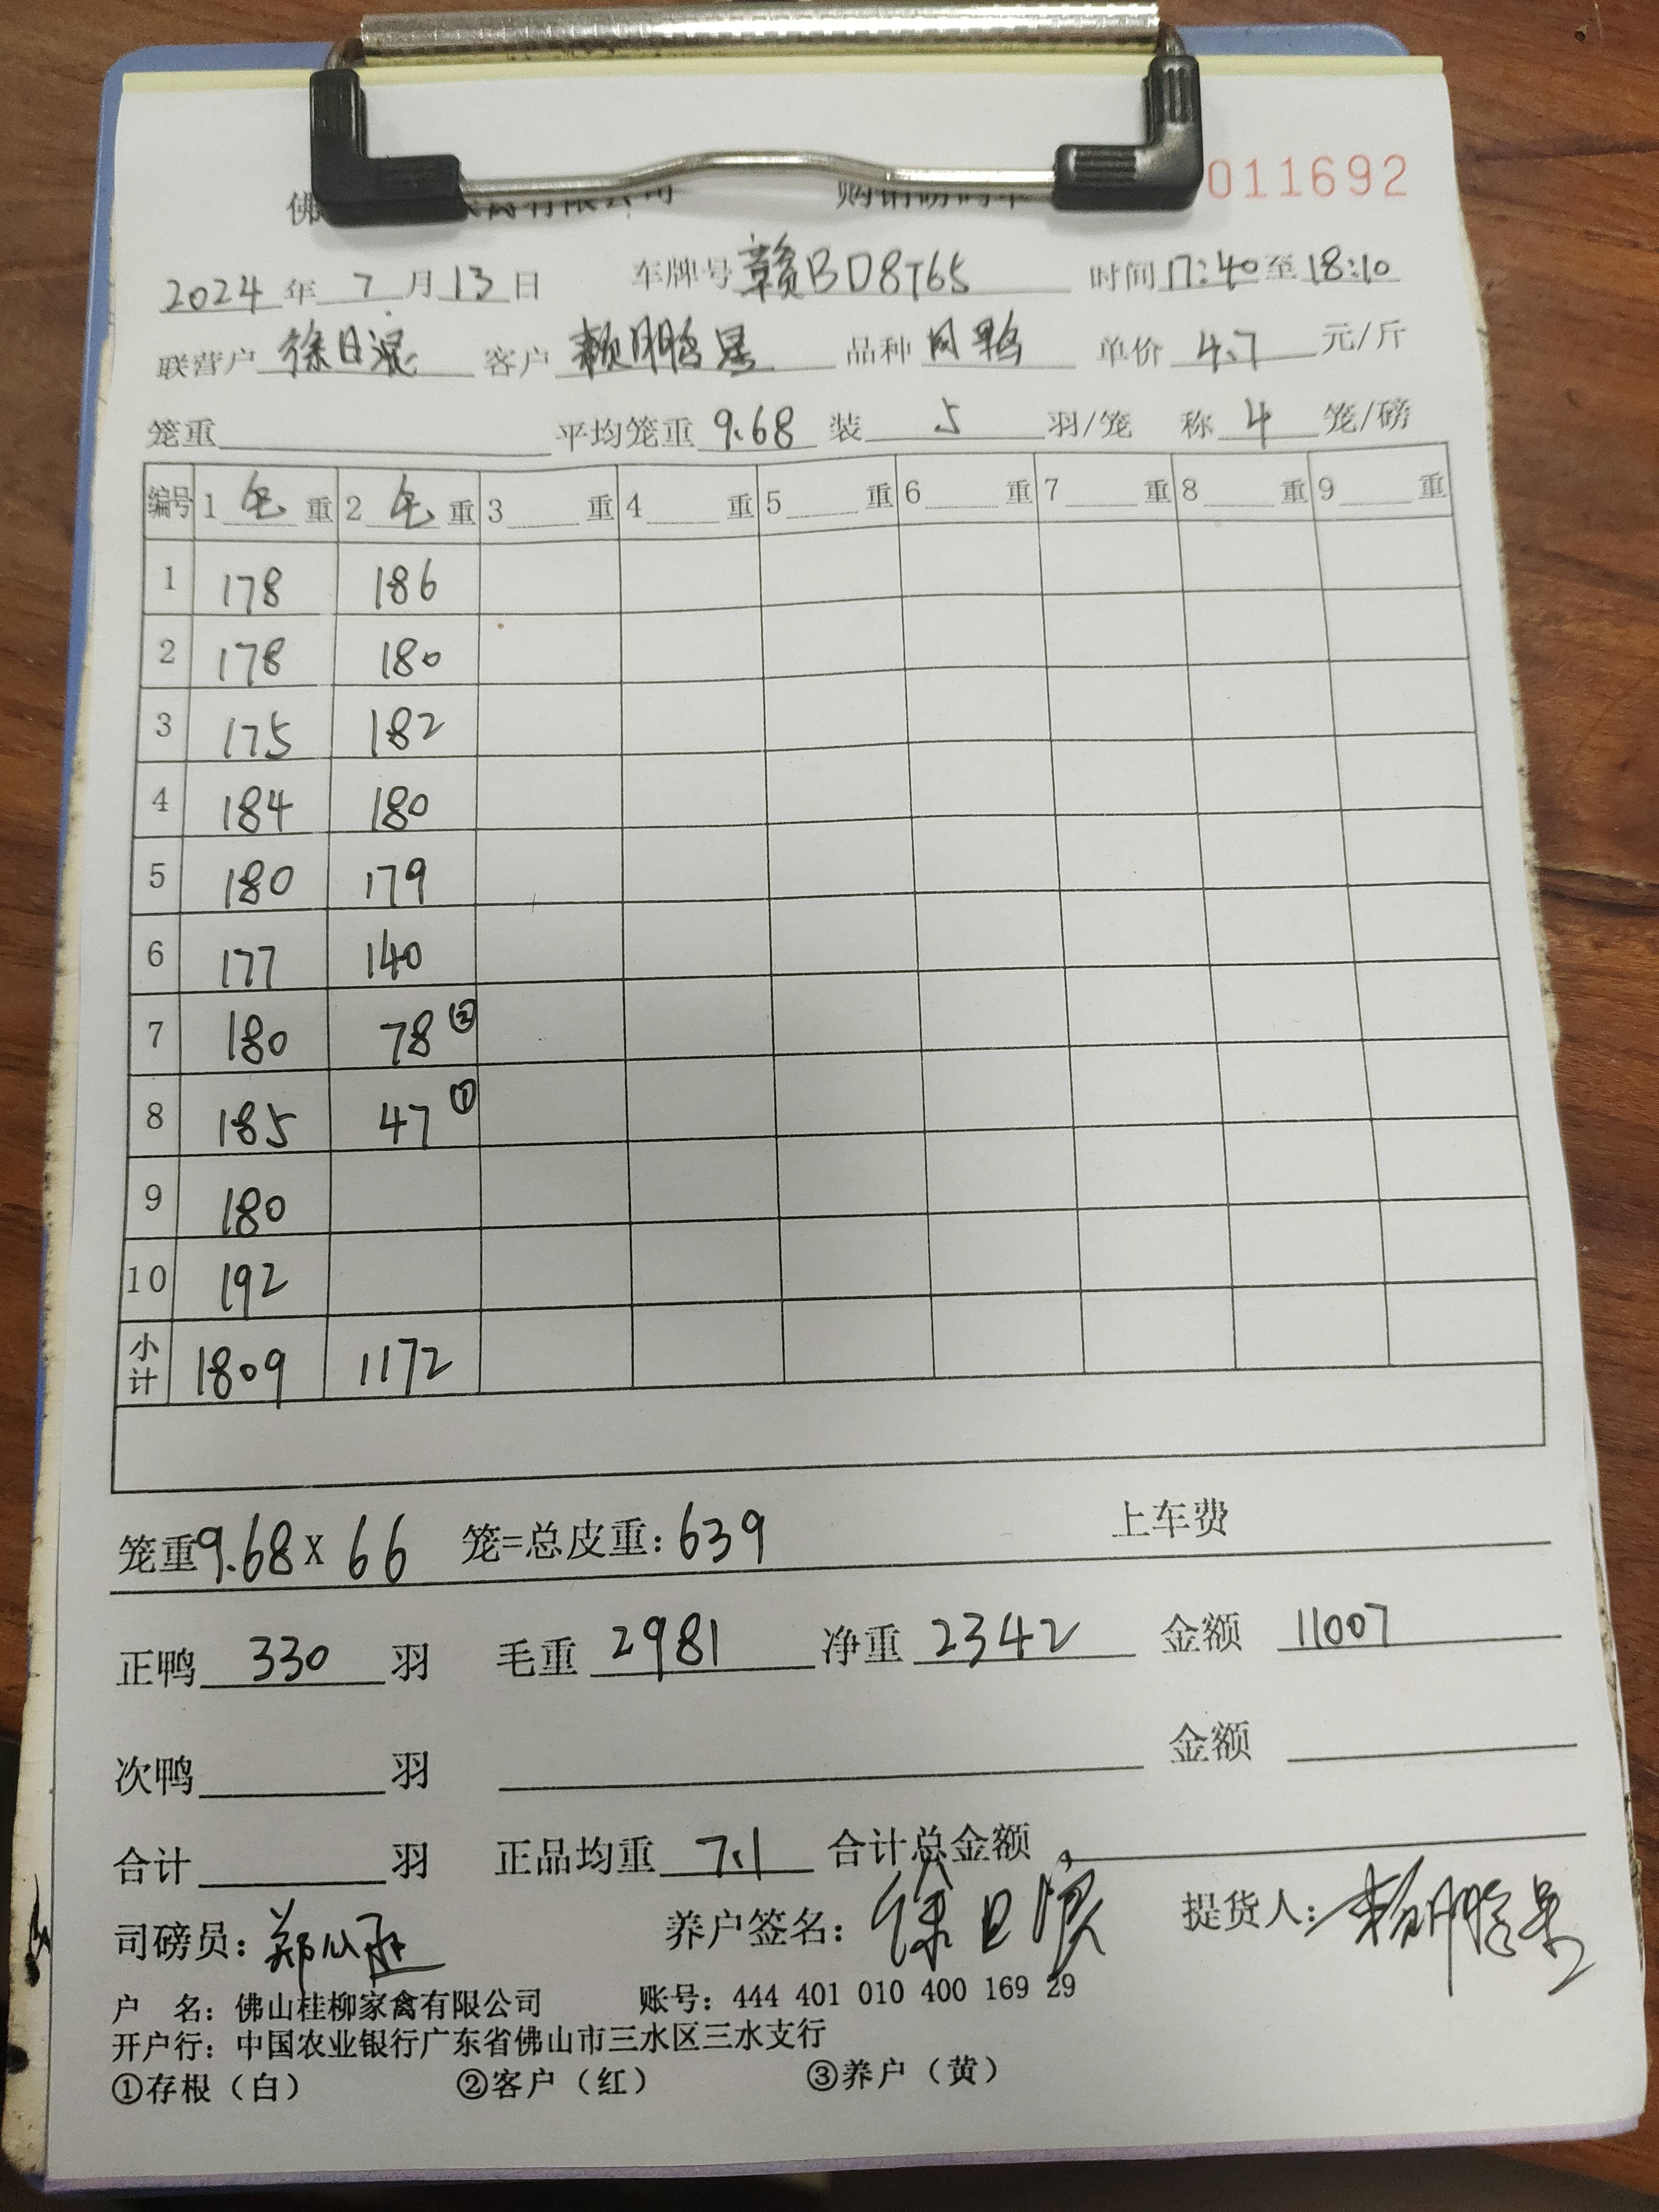 011692
佛 禽有限公司 购销磅码单
2024 年 7 月 13 日 车牌号 赣BD8T65 时间 17:40 至 18:10
联营户 徐日 客户 赖明 品种 单价 4.7 元/斤
笼重 平均笼重 9.68 装 5 羽/笼 称 4 笼/磅
编号 1 毛 重 2 毛 重 3 重 4 重 5 重 6 重 7 重 8 重 9 重
1 178 186
2 178 180
3 175 182
4 184 180
5 180 179
6 177 140
7 180 78 ②
8 185 47 ①
9 180
10 192
小计 1809 1172
笼重 9.68 x 66 笼=总皮重: 639 上车费
正鸭 330 羽 毛重 2981 净重 2342 金额 11007
次鸭 羽 金额
合计 羽 正品均重 7.1 合计总金额
司磅员: 郑 养户签名: 徐日 提货人: 赖明
户 名: 佛山桂柳家禽有限公司 账号: 444 401 010 400 169 29
开户行: 中国农业银行广东省佛山市三水区三水支行
①存根（白） ②客户（红） ③养户（黄）